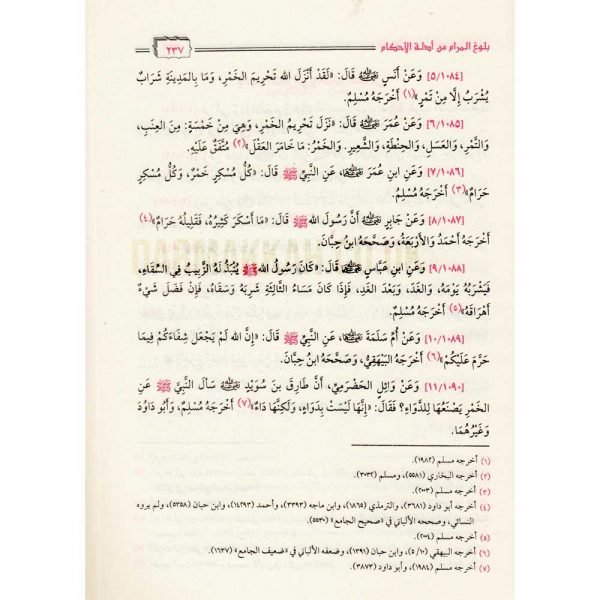 بلوغ المرام من أدلة الأحكام
٢٣٧
[٥/١٠٨٤] وَعَنْ أَنَسٍ ﷺ قَالَ: «لَقَدْ أَنْزَلَ الله تَحْرِيمَ الْخَمْرِ، وَمَا بِالمَدِينَةِ شَرَابٌ
يُشْرَبُ إِلَّا مِنْ تَمْرٍ»(١) أَخْرَجَهُ مُسْلِمٌ.
[٦/١٠٨٥] وَعَنْ عُمَرَ قَالَ: «نَزَلَ تَحْرِيمُ الْخَمْرِ، وَهِيَ مِنْ خَمْسَةٍ: مِنَ العِنَبِ،
وَالتَّمْرِ، وَالعَسَلِ، وَالحِنْطَةِ، وَالشَّعِيرِ. وَالخَمْرُ: مَا خَامَرَ العَقْلَ»(٢) مُتَّفَقٌ عَلَيْهِ.
[٧/١٠٨٦] وَعَنِ ابنِ عُمَرَ، عَنِ النَّبِيِّ ﷺ قَالَ: «كُلُّ مُسْكِرٍ خَمْرٌ، وَكُلُّ مُسْكِرٍ
حَرَامٌ»(٣) أَخْرَجَهُ مُسْلِمٌ.
[٨/١٠٨٧] وَعَنْ جَابِرٍ أَنَّ رَسُولَ الله ﷺ قَالَ: «مَا أَسْكَرَ كَثِيرُهُ، فَقَلِيلُهُ حَرَامٌ»(٤)
أَخْرَجَهُ أَحْمَدُ وَالأَرْبَعَةُ، وَصَحَّحَهُ ابنُ حِبَّانَ.
[٩/١٠٨٨] وَعَنِ ابنِ عَبَّاسٍ قَالَ: «كَانَ رَسُولُ الله ﷺ يُنْبَذُ لَهُ الزَّبِيبُ فِي السِّقَاءِ،
فَيَشْرَبُهُ يَوْمَهُ، وَالغَدَ، وَبَعْدَ الغَدِ، فَإِذَا كَانَ مَسَاءُ الثَّالِثَةِ شَرِبَهُ وَسَقَاهُ، فَإِنْ فَضَلَ شَيْءٌ
أَهْرَاقَهُ»(٥) أَخْرَجَهُ مُسْلِمٌ.
[١٠/١٠٨٩] وَعَنْ أُمِّ سَلَمَةَ، عَنِ النَّبِيِّ ﷺ قَالَ: «إِنَّ اللهَ لَمْ يَجْعَل شِفَاءَكُمْ فِيمَا
حَرَّمَ عَلَيْكُمْ»(٦) أَخْرَجَهُ البَيْهَقِيُّ، وَصَحَّحَهُ ابنُ حِبَّانَ.
[١١/١٠٩٠] وَعَنْ وَائِلٍ الحَضْرَمِيِّ، أَنَّ طَارِقَ بنَ سُوَيْدٍ سَأَلَ النَّبِيَّ ﷺ عَنِ
الخَمْرِ يَصْنَعُهَا لِلدَّوَاءِ؟ فَقَالَ: «إِنَّهَا لَيْسَتْ بِدَوَاءٍ، وَلَكِنَّهَا دَاءٌ»(٧) أَخْرَجَهُ مُسْلِمٌ، وَأَبُو دَاوُدَ
وَغَيْرُهُمَا.
(١) أخرجه مسلم (١٩٨٢).
(٢) أخرجه البخاري (٥٥٨١)، ومسلم (٣٠٣٢).
(٣) أخرجه مسلم (٢٠٠٣).
(٤) أخرجه أبو داود (٣٦٨١)، والترمذي (١٨٦٥)، وابن ماجه (٣٣٩٣)، وأحمد (١٤٢٩٣)، وابن حبان (٥٣٥٨)، ولم يروه
النسائي، وصححه الألباني في «صحيح الجامع» (٥٥٣٠).
(٥) أخرجه مسلم (٢٠٠٤).
(٦) أخرجه البيهقي (١٠/ ٥)، وابن حبان (١٣٩١)، وضعفه الألباني في «ضعيف الجامع» (١٦٣٧).
(٧) أخرجه مسلم (١٩٨٤)، وأبو داود (٣٨٧٣).